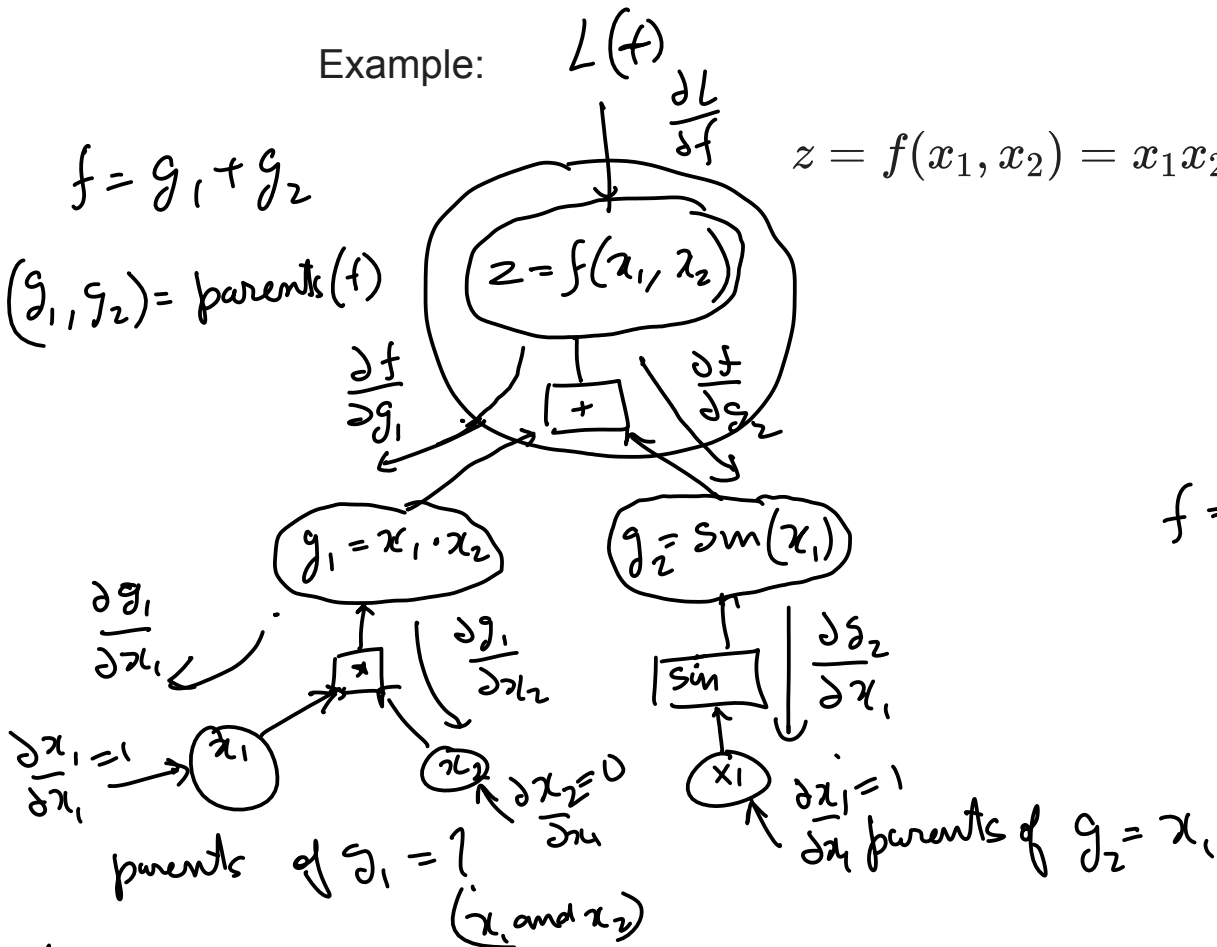 Example:
L(f)
∂L/∂f
z = f(x₁, x₂) = x₁x₂
f = g₁ + g₂
(g₁, g₂) = parents(f)
z = f(x₁, x₂)
∂f/∂g₁
+
∂f/∂g₂
f =
g₁ = x₁ · x₂
g₂ = sin(x₁)
∂g₁/∂x₁
*
∂g₁/∂x₂
sin
∂g₂/∂x₁
∂x₁/∂x₁ = 1
x₁
x₂
∂x₂/∂x₁ = 0
x₁
∂x₁/∂x₁ = 1
parents of g₂ = x₁
parents of g₁ = ?
(x₁ and x₂)